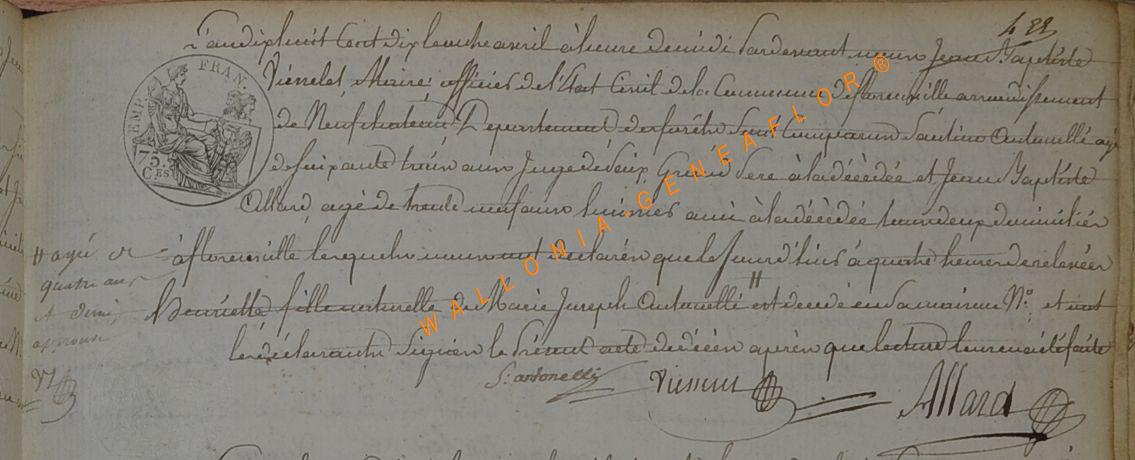 488
L'an dix huit Cent dix le onche avril à heure de midi Pardevant nous Jean Baptiste
EMP FRAN.
75
CES
Maire officier de l'Etat Civil de la Commune de florenville arrondissement
de Neufchateau Departement des forêts Sont Comparus Santino Antonelli agé
de soixante troien ans Juge de paix Grand Pere à la décèdée et Jean Baptiste
Allard, agé de trente neuf ans ami à la décèdée tous deux domiciliér
à florenville lesquels nous ont declarén que le jour d'hier à quatre heures de relevéer
# agée de quatre ans et demi approuvé
henriette fille naturelle de Marie Joseph Antonelli # est decedé en Sa maison No. et ont
les déclarants Signén le Présent acte de décén aprèn que lecture leur en a été faite
S: antonelli Allard
WALLONIA-GENEAFLOR®